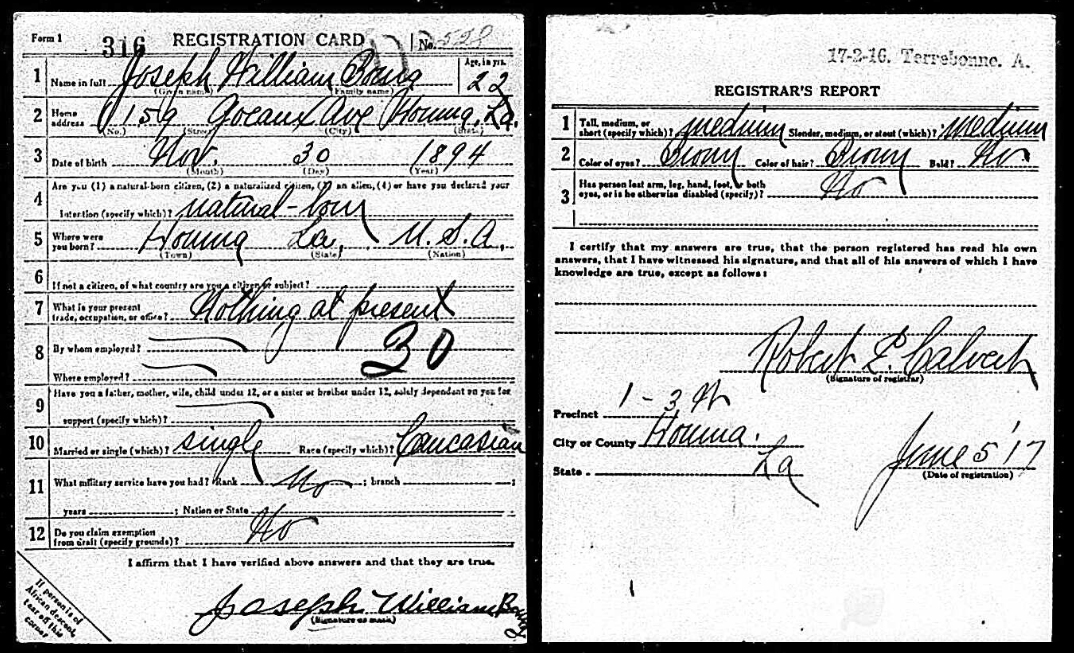 Form 1 316 REGISTRATION CARD No. 529
1 Name in full Joseph William Bourg Age, in yrs. 22
(Given name) (Family name)
2 Home address 159 Goeaux Ave Houma, La.
(No.) (Street) (City) (State)
3 Date of birth Nov. 30 1894
(Month) (Day) (Year)
4 Are you (1) a natural-born citizen, (2) a naturalized citizen, (3) an alien, (4) or have you declared your
intention (specify which)? natural-born
5 Where were you born? Houma La. U.S.A.
(Town) (State) (Nation)
6 If not a citizen, of what country are you a citizen or subject?
7 What is your present trade, occupation, or office? Nothing at present
8 By whom employed? 30
Where employed?
9 Have you a father, mother, wife, child under 12, or a sister or brother under 12, solely dependent on you for
support (specify which)?
10 Married or single (which)? single Race (specify which)? Caucasian
11 What military service have you had? Rank No ; branch ;
years ; Nation or State
12 Do you claim exemption from draft (specify grounds)? No
I affirm that I have verified above answers and that they are true.
Joseph William Bourg
(Signature or mark)
If person is of
African descent,
tear off this
corner
17-2-16. Terrebonne. A.
REGISTRAR'S REPORT
1 Tall, medium, or short (specify which)? medium Slender, medium, or stout (which)? medium
2 Color of eyes? Brown Color of hair? Brown Bald? No
3 Has person lost arm, leg, hand, foot, or both eyes, or is he otherwise disabled (specify)? No
I certify that my answers are true, that the person registered has read his own
answers, that I have witnessed his signature, and that all of his answers of which I have
knowledge are true, except as follows:
Robert L. Calvert
(Signature of registrar)
Precinct 1-3 W
City or County Houma.
State La
June 5 '17
(Date of registration)